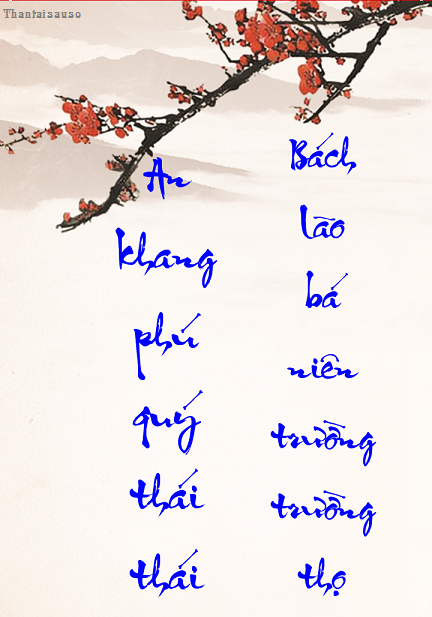 Thantaisauso
An
khang
phú
quý
thái
thái
Bách
lão
bá
niên
trường
trường
thọ